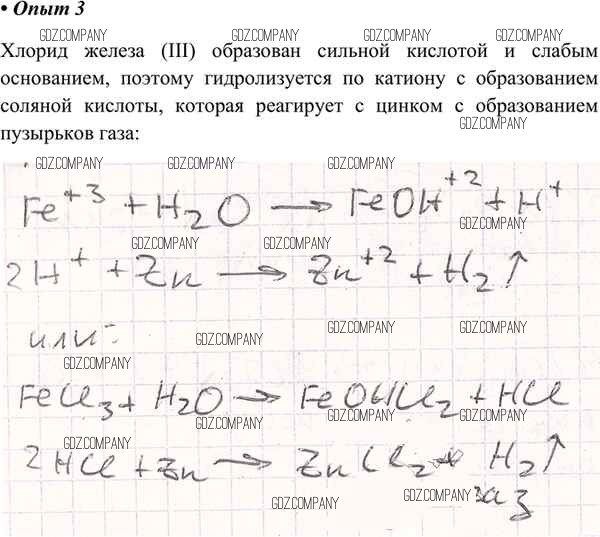 • Опыт 3
GDZ.COMPANY GDZ.COMPANY GDZ.COMPANY GDZ.COMPANY
Хлорид железа (III) образован сильной кислотой и слабым
основанием, поэтому гидролизуется по катиону с образованием
GDZ.COMPANY GDZ.COMPANY GDZ.COMPANY
соляной кислоты, которая реагирует с цинком с образованием
GDZ.COMPANY
пузырьков газа:
GDZ.COMPANY GDZ.COMPANY GDZ.COMPANY GDZ.COMPANY
Fe⁺³ + H₂O → FeOH⁺² + H⁺
GDZ.COMPANY
GDZ.COMPANY GDZ.COMPANY
2H⁺ + Zn → Zn⁺² + H₂↑
GDZ.COMPANY GDZ.COMPANY GDZ.COMPANY
или:
GDZ.COMPANY
GDZ.COMPANY
FeCl₃ + H₂O → FeOHCl₂ + HCl
GDZ.COMPANY GDZ.COMPANY GDZ.COMPANY
GDZ.COMPANY
2HCl + Zn → ZnCl₂ + H₂↑
GDZ.COMPANY GDZ.COMPANY
газ
GDZ.COMPANY